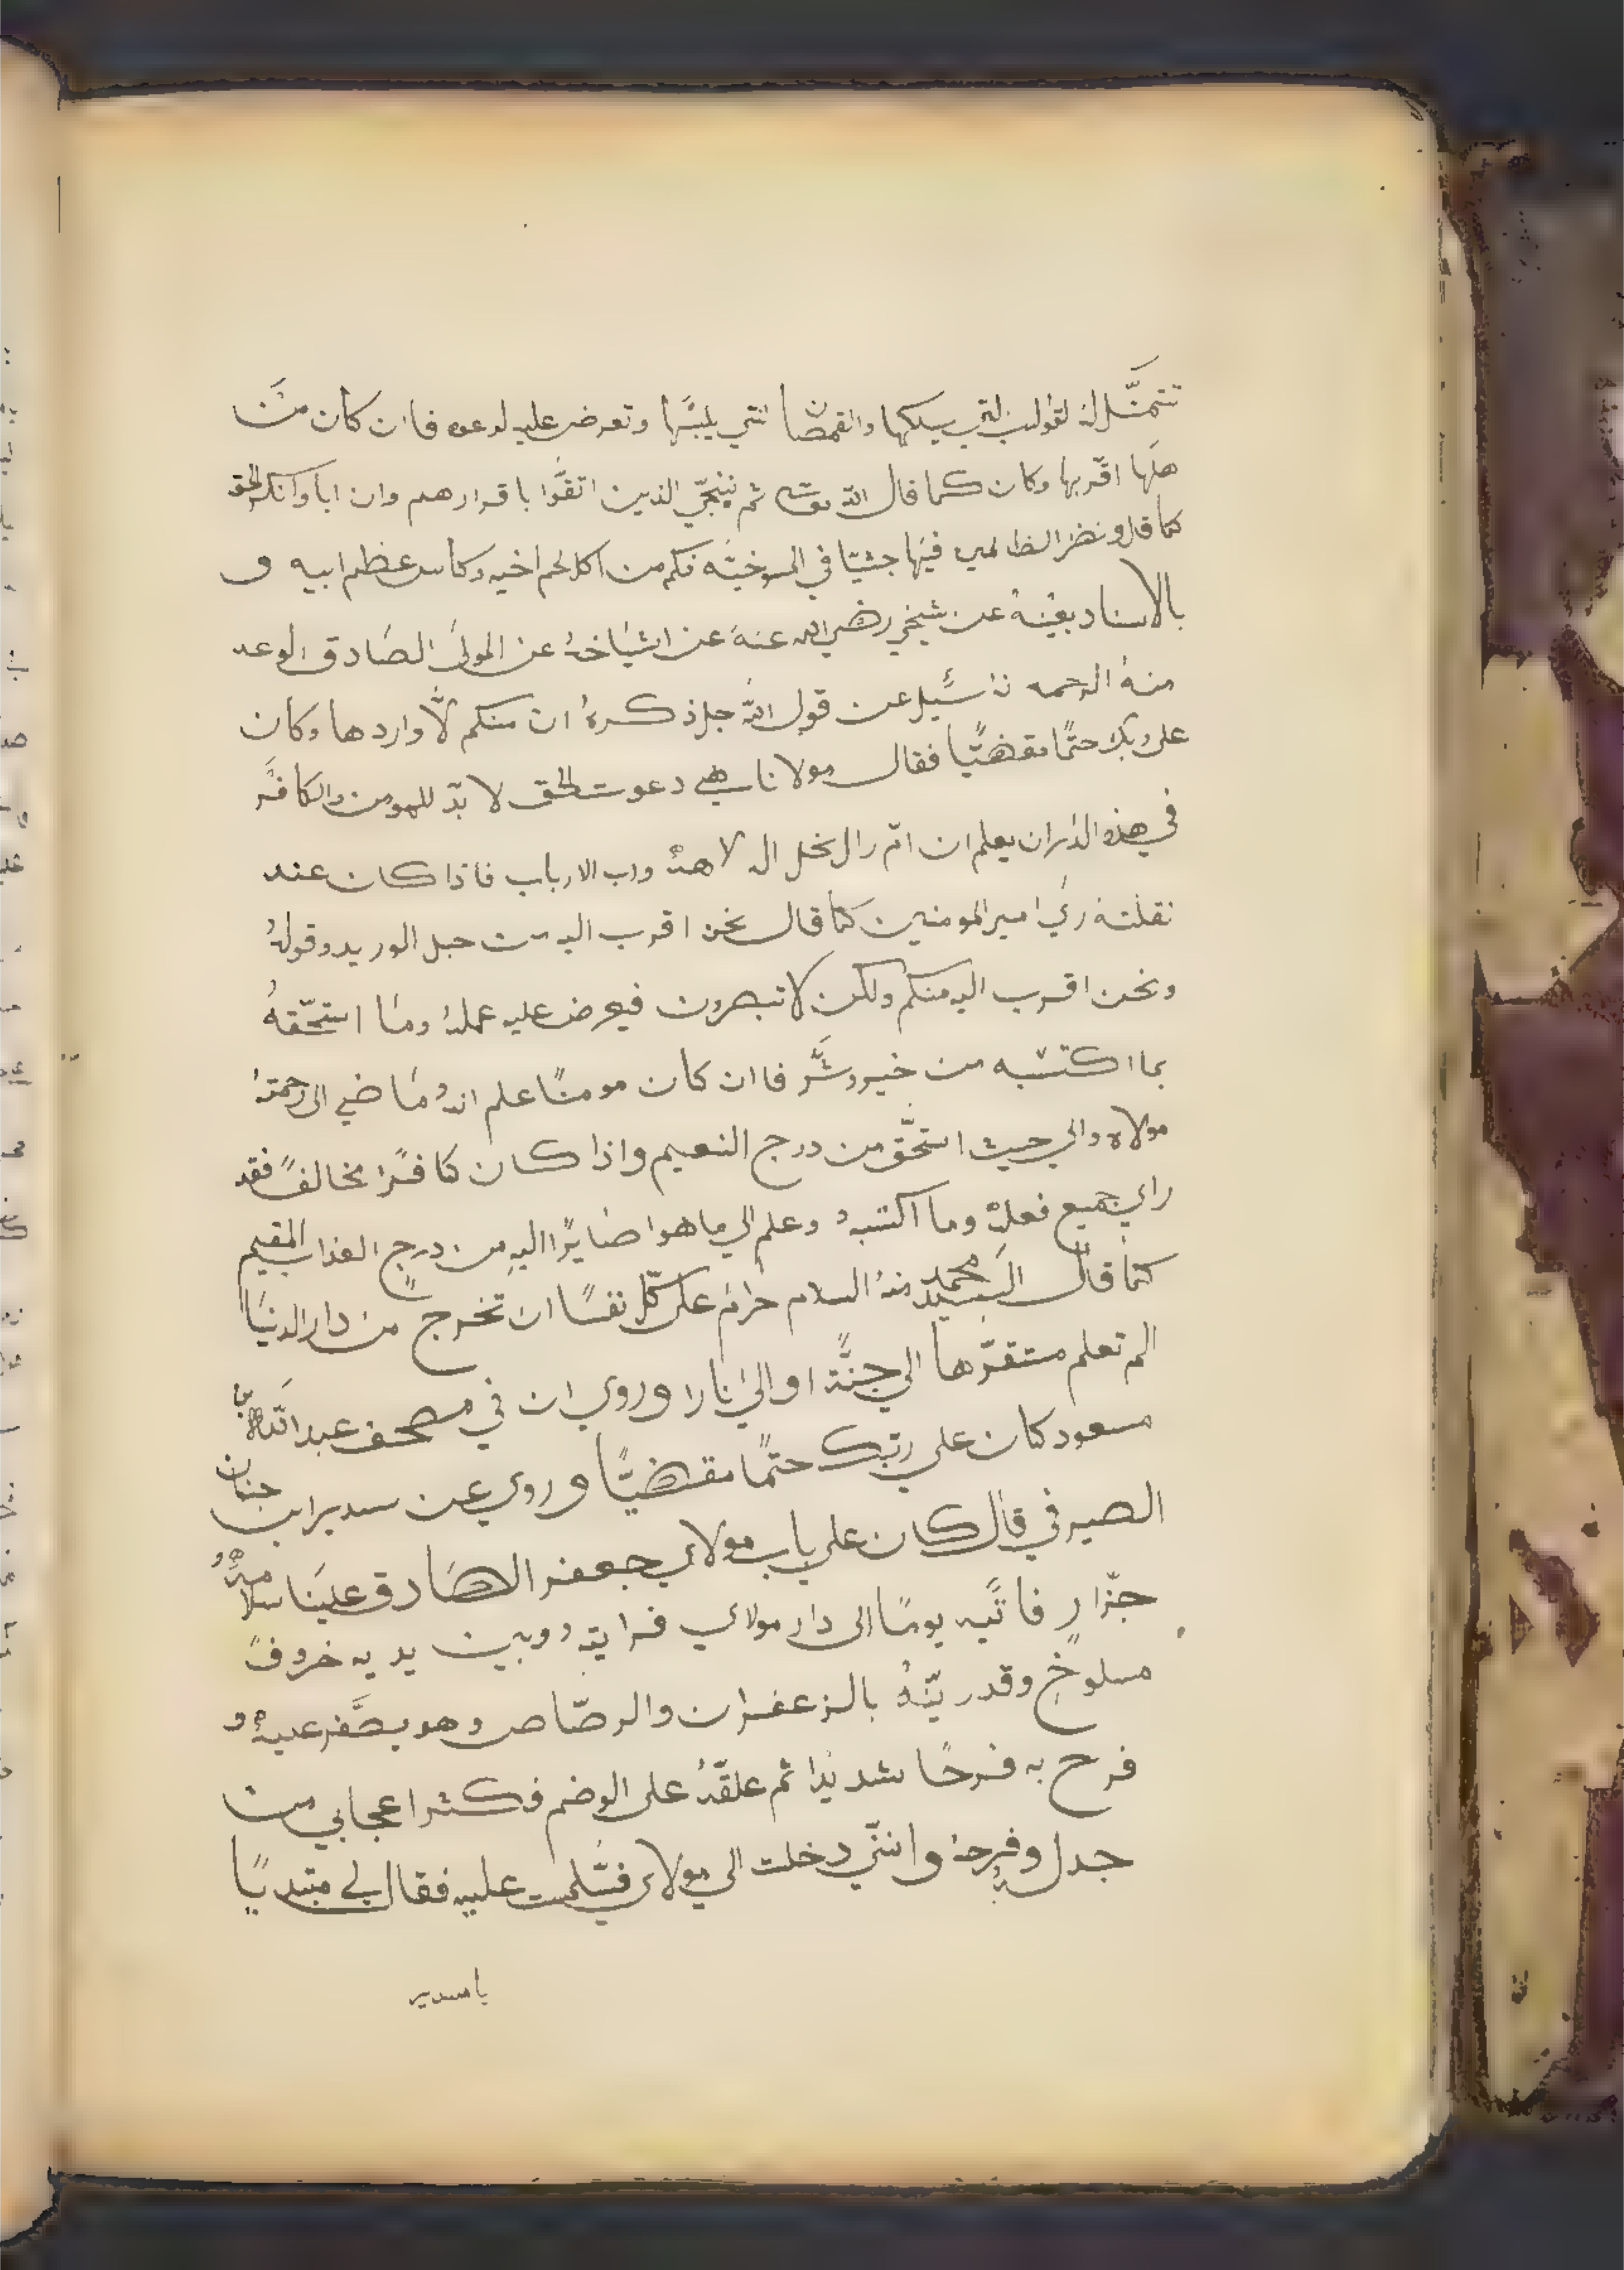 تتمثّل له القوالب التي يسلكها والقمصان التي يلبسّها وتعرض عليه لدعوه فاان كان من
هلها اقرّبها وكان كما قال اللّه تعالى ثم ننجيّ الذين اتقَّوا باقرارهم وان ابا وانكر الحق
كما قال ونضر الظالمين فيها جثيّا في المسوخيّه فكم من اكل لحم اخيه وكاسر عظم ابيه و
بالاسناد بعْينهُ عن شيخي رضي الله عنهُ عن اشياخهُ عن المولىَ الصَادق الوعد
منهُ الرحمه انهُ سَُيل عن قول اللّه جل ذكرهُ ان منكم لاَّ واردها وكان
على ربك حتمًا مقضيًّا فقال مولانا هي دعوت الحق لا بدّ للمومن والكافر
في هذه الدار ان يعلم ان امير النحل اله لالهه ورب الارباب فاذا كان عند
نقلتهُ رئ امير المومنين كما قال نحن اقرب اليه من حبل الوريد وقولهُ
ونحن اقرب اليه منكم ولكن لا تبصرون فيعرض عليه عملهُ ومَا استحّقهُ
بما اكتسبه من خير وشَّر فاان كان مومنًا علم انهُ مَاضي الى رحمة
مولاه والي حيث استحَّق من درج النعيم واذا كان كافرًا مخالفًا فقد
راي جميع فعلهُ وما اكتسبهُ وعلم الي ما هوا صَايرًا اليه من درج العذاب المقيم
كما قال السيد محمد منهُ السلام حرام على كلّ نفسًا ان تخرج من دار الدنيَا
الم تعلم مستقرّها الي جنَّة او الي نارا وروي ان في مصحف عبد اللّه بن
مسعود كان علي ربّك حتمًا مقضيًّا وروي عن سدير ابن جنان
الصيرفي قال كان علي باب مولاي جعفر الصَادق علينَا سلامهُ
جزّار فاتَيه يومًا الى دار مولاي فرايتهُ وبين يديه خروفً
مسلوخٍ وقد زيّنهُ بالزعفران والرصّاص وهو يصَّفر عليهُ و
فرح به فرحًا شديدًا ثم علقّهُ على الوضم فكثر اعجابي من
جدل وفرحهُ وانني دخلت الي مولاي فسّلمت عليه فقال لي مبتديًا
يا سدير